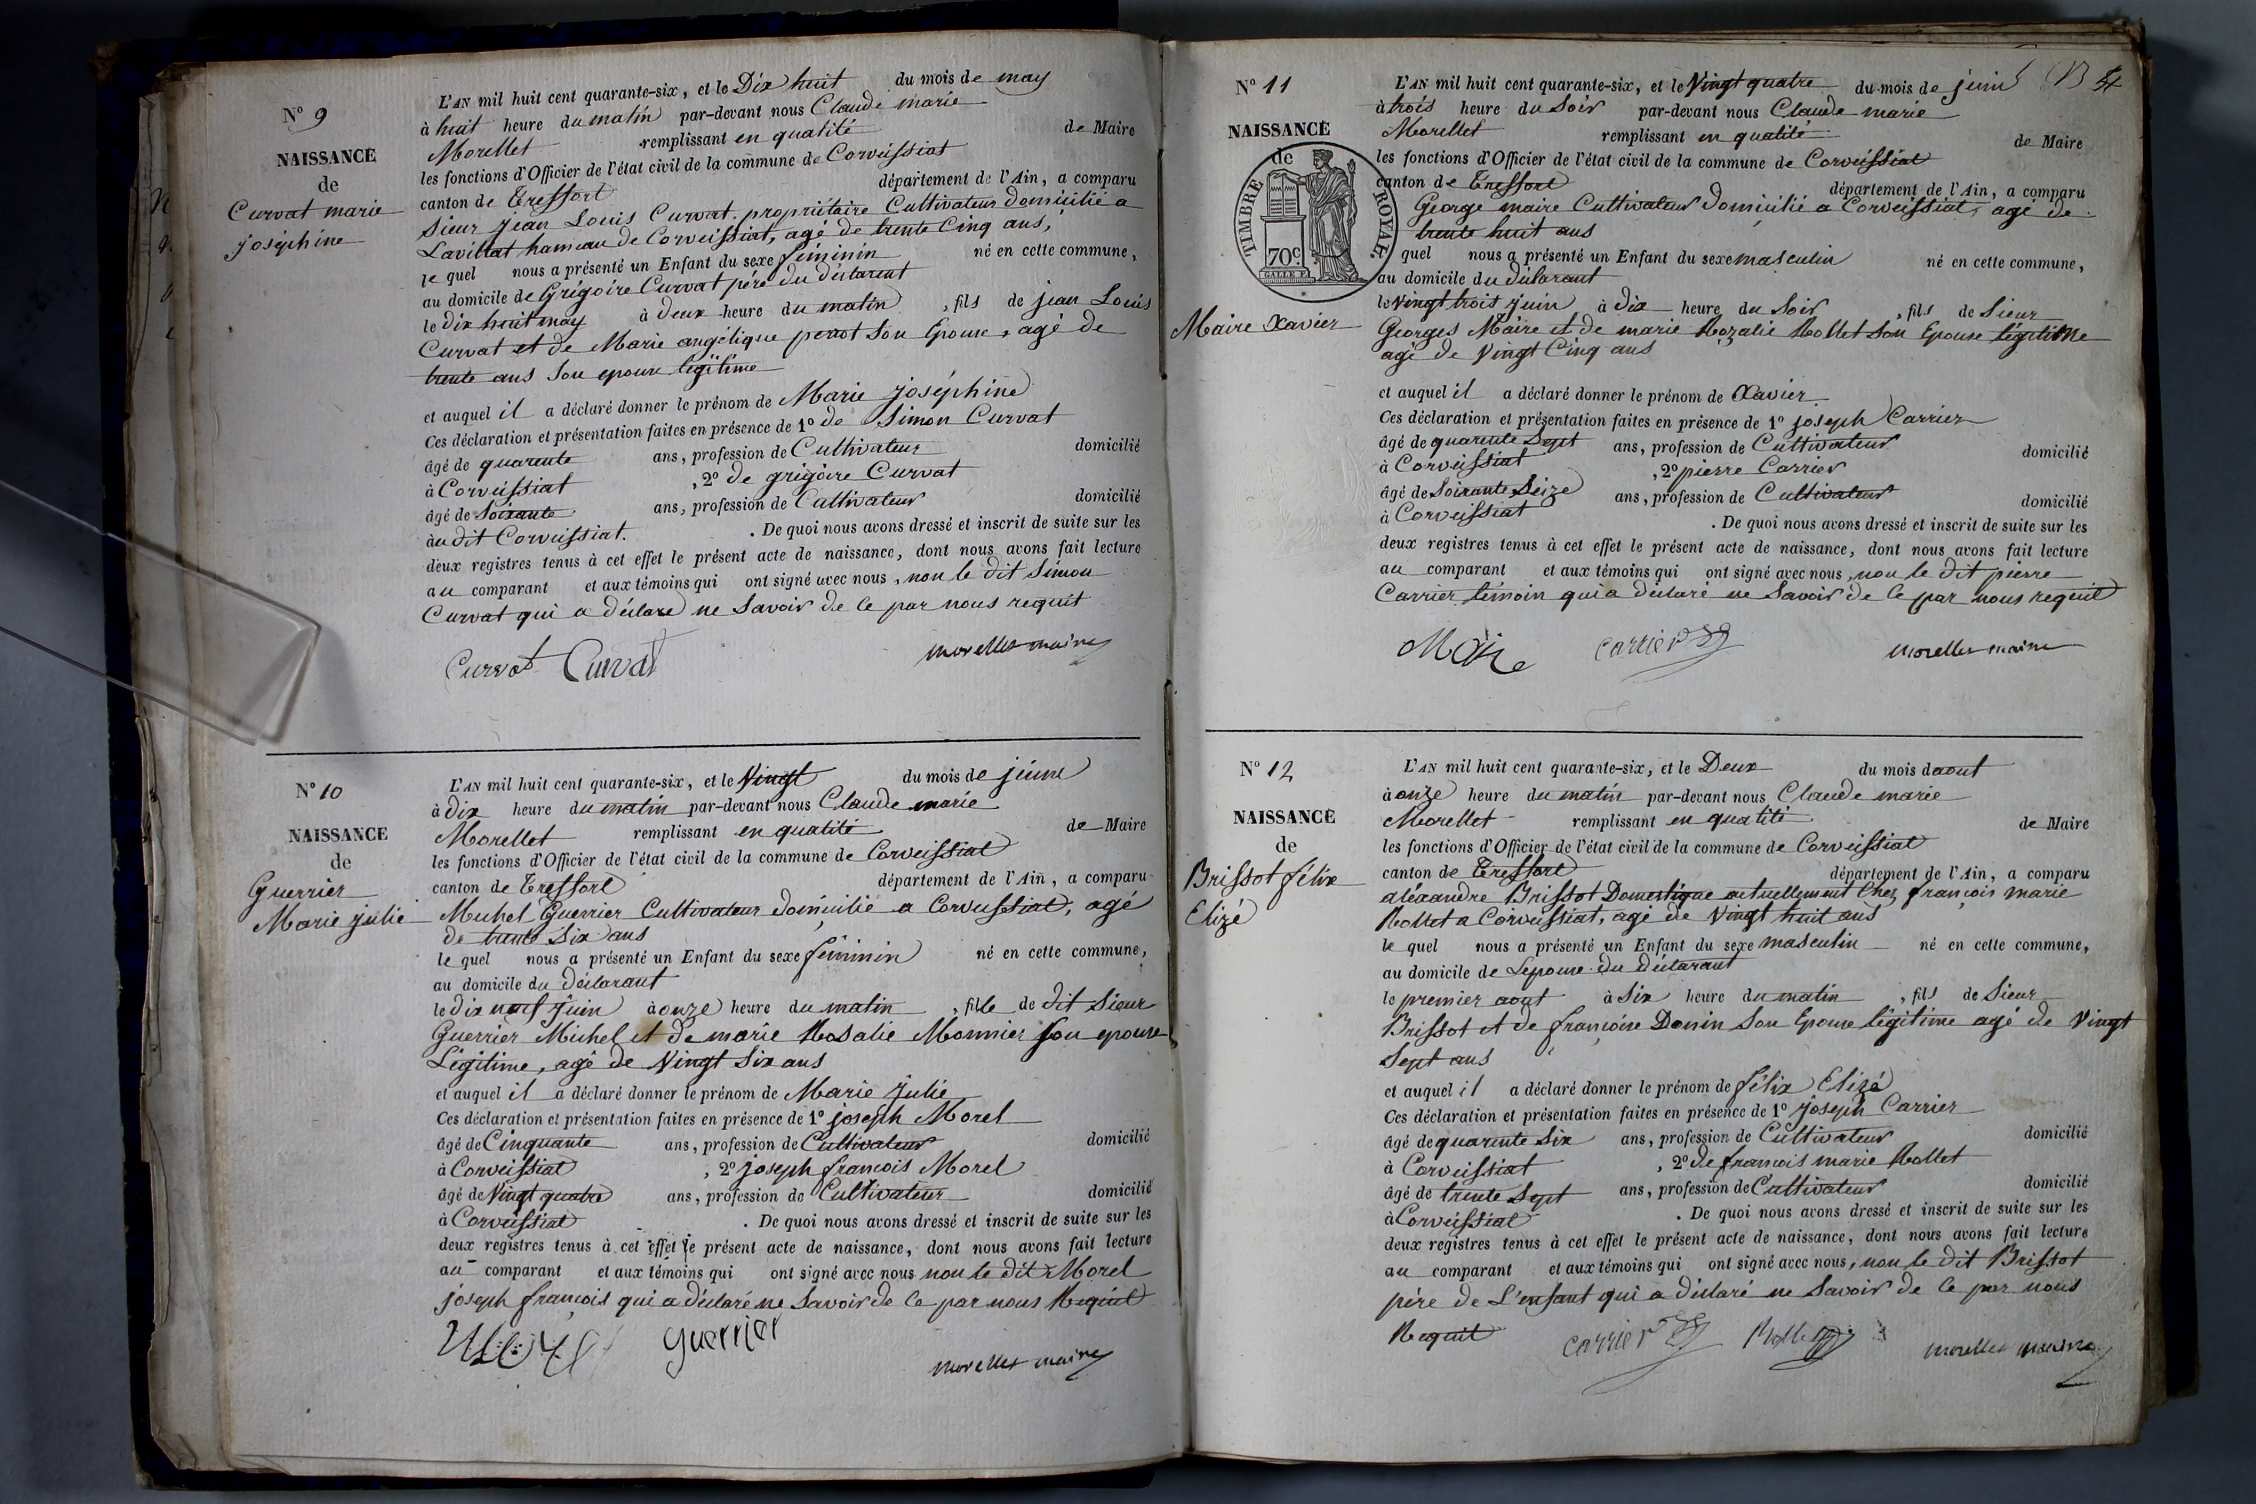 N° 9
NAISSANCE
de
Curvat marie
joséphine
L'AN mil huit cent quarante-six, et le Dix huit du mois de may
à huit heure du matin par-devant nous Claude marie
Morellet remplissant en qualité de Maire
les fonctions d'Officier de l'état civil de la commune de Corveissiat
canton de Treffort département de l'Ain, a comparu
Sieur jean Louis Curvat propriétaire Cultivateur domicilié a
Lavillat hameau de Corveissiat, agé de trente Cinq ans,
le quel nous a présenté un Enfant du sexe féminin né en cette commune,
au domicile de Grégoire Curvat pére du déclarent
le dix huit may à deux heure du matin, fils de jean Louis
Curvat et de Marie angélique perrot Son Epouse, agé de
trente ans Son epouse légitime
et auquel il a déclaré donner le prénom de Marie joséphine
Ces déclaration et présentation faites en présence de 1° de Simon Curvat
âgé de quarente ans, profession de Cultivateur domicilié
à Corveissiat, 2° de grégoire Curvat
âgé de Soixante ans, profession de Cultivateur domicilié
àu dit Corveissiat. . De quoi nous avons dressé et inscrit de suite sur les
deux registres tenus à cet effet le présent acte de naissance, dont nous avons fait lecture
au comparant et aux témoins qui ont signé avec nous, non le dit Simon
Curvat qui a déclaré ne Savoir de ce par nous requit
Curvat Curvat morellet maire
N° 10
NAISSANCE
de
Guerrier
Marie julie
L'AN mil huit cent quarante-six, et le Vingt du mois de jeune
à dix heure du matin par-devant nous Claude marie
Morellet remplissant en qualité de Maire
les fonctions d'Officier de l'état civil de la commune de Corveissiat
canton de Treffort département de l'Ain, a comparu
Michel Guerrier Cultivateur domicilié a Corveissiat, agé
de trente Six ans
le quel nous a présenté un Enfant du sexe féminin né en cette commune,
au domicile du déclarant
le dix neuf juin à onze heure du matin, fille de dit Sieur
Guerrier Michel et de marie Rosalie Monnier Son epouse
Légitime, agé de Vingt Six ans
et auquel il a déclaré donner le prénom de Marie julie
Ces déclaration et présentation faites en présence de 1° joseph Morel
âgé de Cinquante ans, profession de Cultivateur domicilié
à Corveissiat, 2° joseph francois Morel
âgé de Vingt quatre ans, profession de Cultivateur domicilié
à Corveissiat . De quoi nous avons dressé et inscrit de suite sur les
deux registres tenus à cet effet le présent acte de naissance, dont nous avons fait lecture
au comparant et aux témoins qui ont signé avec nous non le dit Morel
joseph francois qui a déclaré ne Savoir de ce par nous Requit
guerrier morellet maire
N° 11
NAISSANCE
de
TIMBRE ROYAL
70c
Maire Xavier
L'AN mil huit cent quarante-six, et le Vingt quatre du mois de juin
à trois heure du Soir par-devant nous Claude marie
Morellet remplissant en qualité de Maire
les fonctions d'Officier de l'état civil de la commune de Corveissiat
canton de Treffort département de l'Ain, a comparu
George maire Cultivateur domicilié a Corveissiat, agé de
trente huit ans
quel nous a présenté un Enfant du sexe masculin né en cette commune,
au domicile du déclarant
le Vingt trois juin à dix heure du Soir, fils de Sieur
Georges Maire et de marie Rozalie Rollet Son Epouse légitime
agé de Vingt Cinq ans
et auquel il a déclaré donner le prénom de Xavier
Ces déclaration et présentation faites en présence de 1° joseph Carrier
âgé de quarente Sept ans, profession de Cultivateur domicilié
à Corveissiat, 2° pierre Carrier
âgé de Soixante Seize ans, profession de Cultivateur domicilié
à Corveissiat . De quoi nous avons dressé et inscrit de suite sur les
deux registres tenus à cet effet le présent acte de naissance, dont nous avons fait lecture
au comparant et aux témoins qui ont signé avec nous, non le dit pierre
Carrier témoin qui a déclaré ne Savoir de ce par nous requit
Maire carrier morellet maire
N° 12
NAISSANCE
de
Brissot félix
Elizé
L'AN mil huit cent quarante-six, et le Deux du mois daout
à onze heure du matin par-devant nous Claude marie
Morellet remplissant en qualité de Maire
les fonctions d'Officier de l'état civil de la commune de Corveissiat
canton de Treffort département de l'Ain, a comparu
aléxandre Brissot Domestique actuellement Chez françois marie
Rollet a Corveissiat, agé de Vingt huit ans
le quel nous a présenté un Enfant du sexe masculin né en cette commune,
au domicile de Lepouse du déclarant
le premier aout à Six heure du matin, fils de Sieur
Brissot et de françoise Donin Son Epouse légitime agé de Vingt
Sept ans
et auquel il a déclaré donner le prénom de félix Elizé
Ces déclaration et présentation faites en présence de 1° joseph Carrier
âgé de quarente Six ans, profession de Cultivateur domicilié
à Corveissiat, 2° de francois marie Rollet
âgé de trente Sept ans, profession de Cultivateur domicilié
à Corveissiat . De quoi nous avons dressé et inscrit de suite sur les
deux registres tenus à cet effet le présent acte de naissance, dont nous avons fait lecture
au comparant et aux témoins qui ont signé avec nous, non le dit Brissot
pére de L'enfant qui a déclaré ne Savoir de ce par nous
Requit carrier Rollet morellet maire